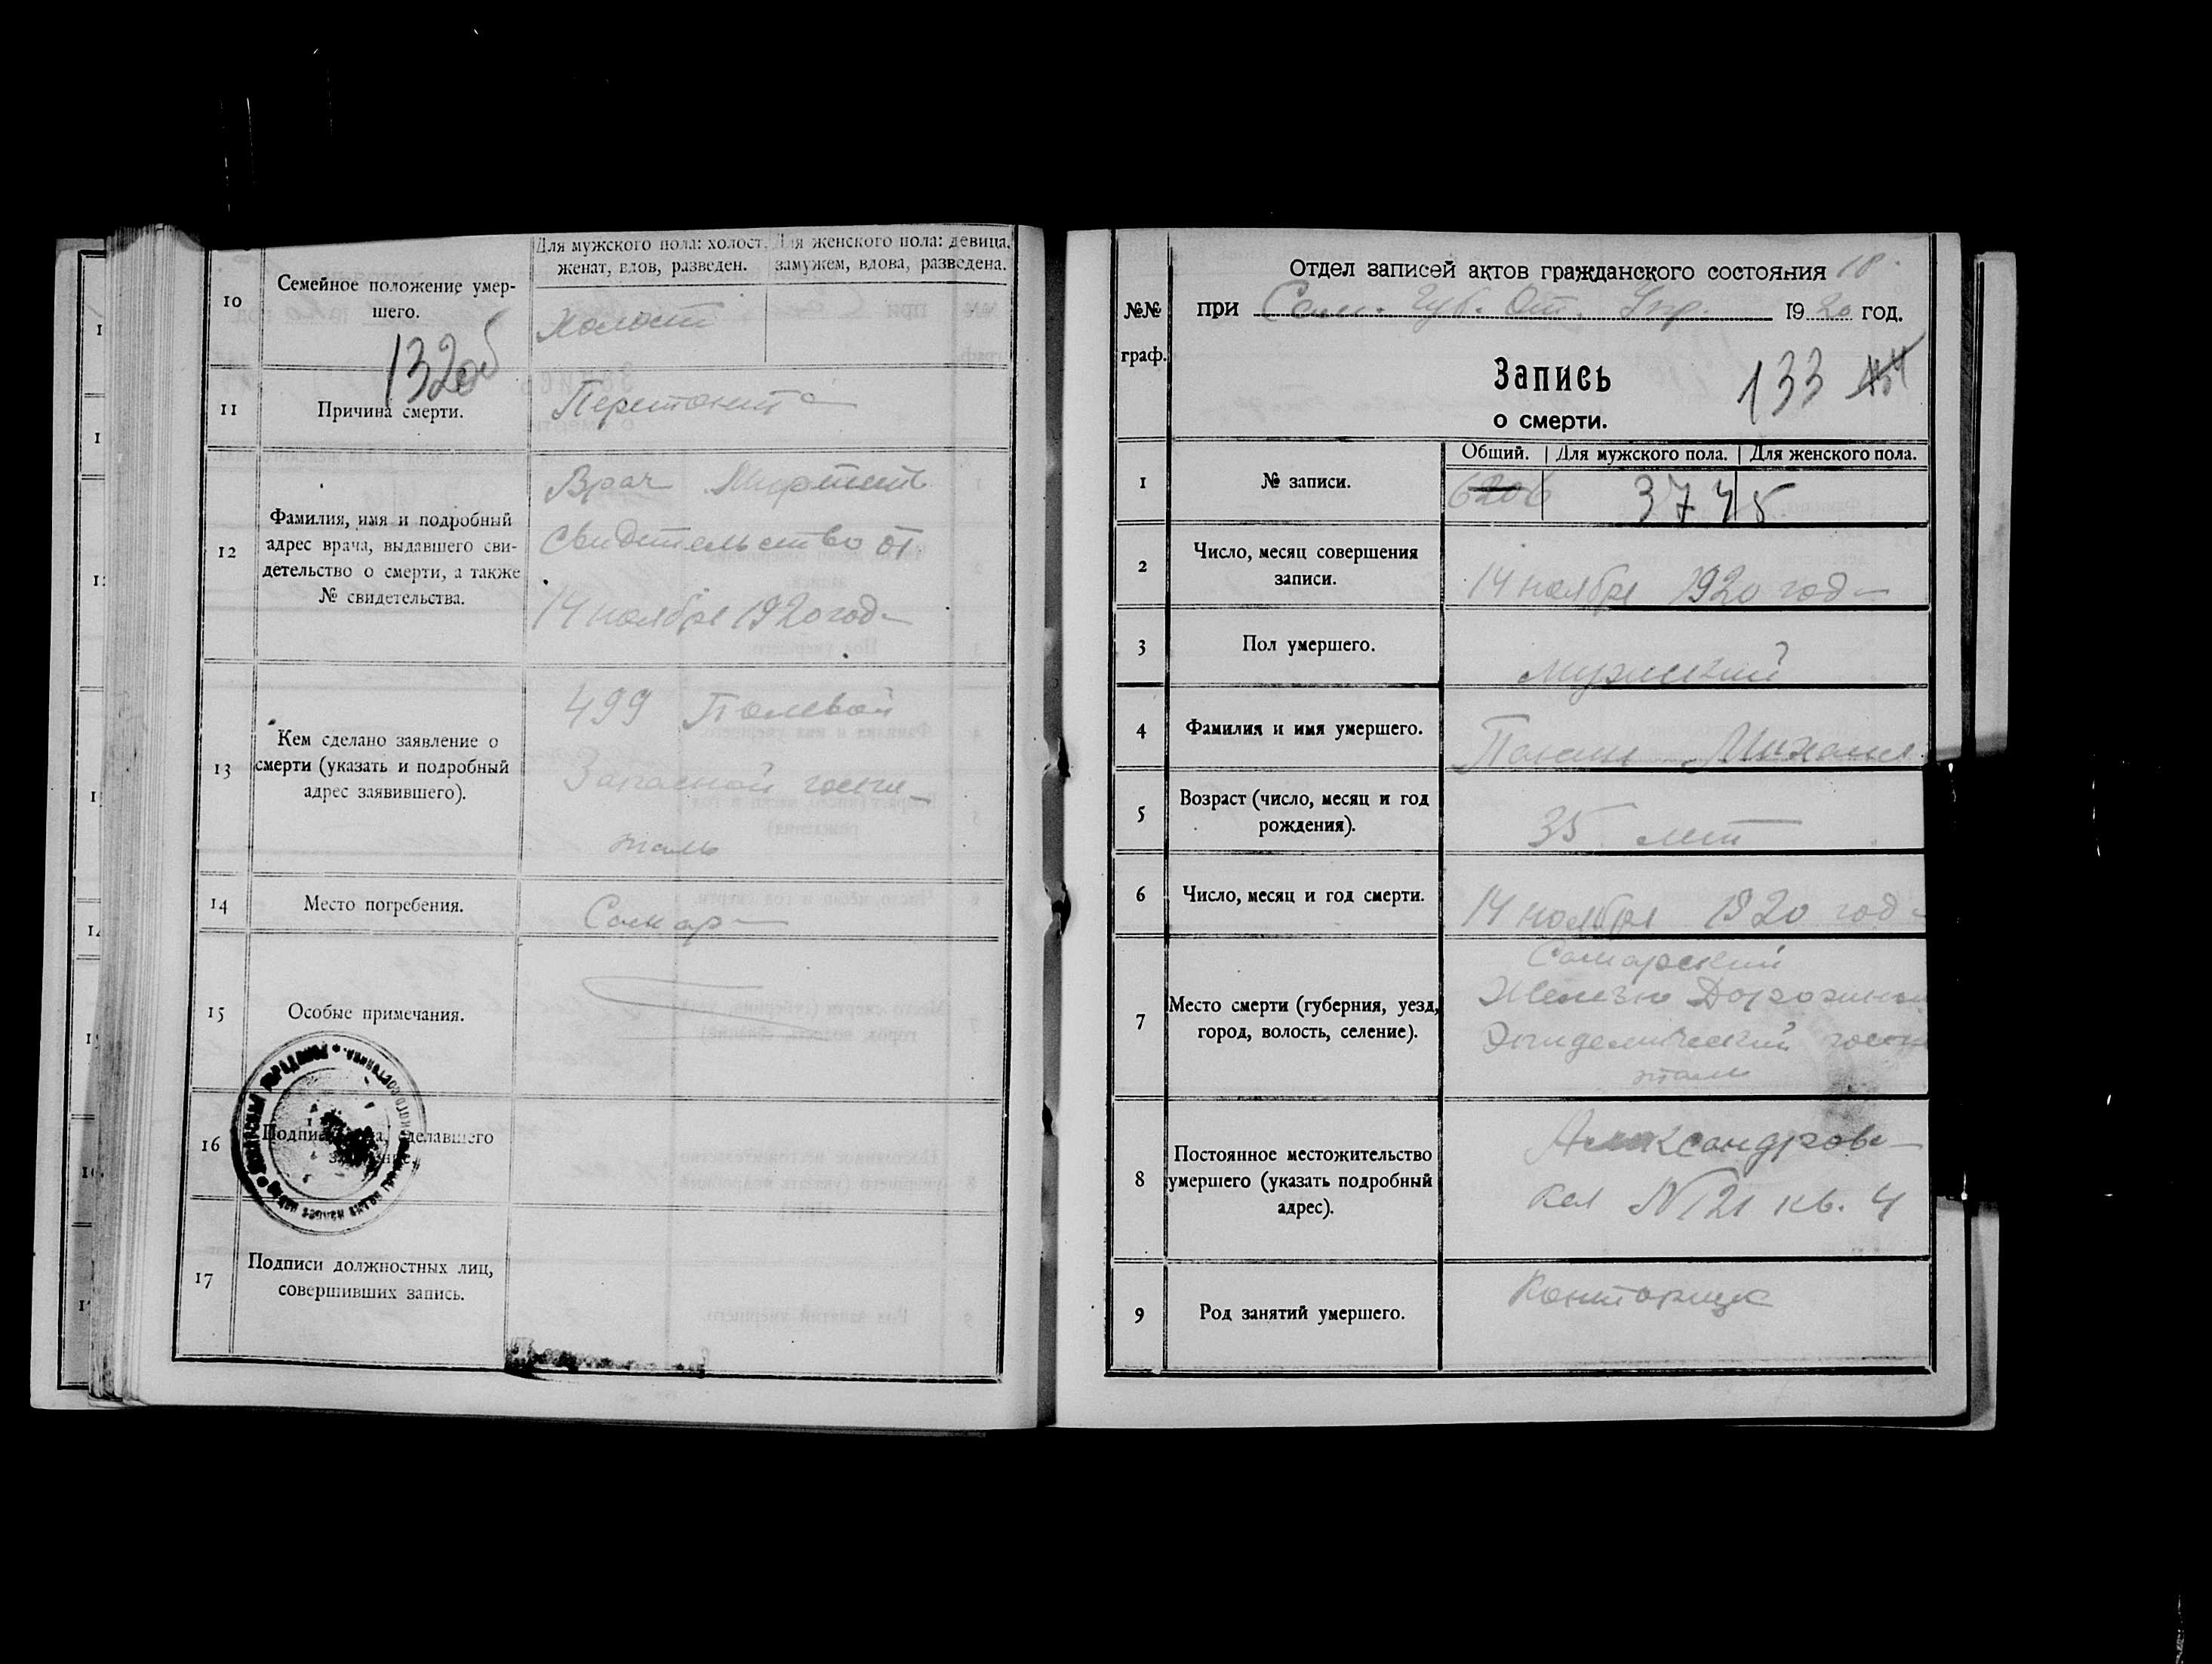 10
Семейное положение умер-
шего.
Для мужского пола: холост,
женат, вдов, разведен.
Для женского пола: девица,
замужем, вдова, разведена.
Холост
132об
11
Причина смерти.
Перетонита
12
Фамилия, имя и подробный
адрес врача, выдавшего сви-
детельство о смерти, а также
№ свидетельства.
Врач
свидетельство от
14 ноября 1920 год
13
Кем сделано заявление о
смерти (указать и подробный
адрес заявившего).
499 Полевой
Запасной госпи-
таль
14
Место погребения.
Самар
15
Особые примечания.
16
17
Подписи должностных лиц,
совершивших запись.
№№
граф.
Отдел записей актов гражданского состояния
при Сам. Губ. От. Упр. 1920 год.
Запись
о смерти.
133
Общий. Для мужского пола. Для женского пола.
1
№ записи.
6206 3775
2
Число, месяц совершения
записи.
14 ноября 1920 год
3
Пол умершего.
мужский
4
Фамилия и имя умершего.
Михаил
5
Возраст (число, месяц и год
рождения).
35 лет
6
Число, месяц и год смерти.
14 ноября 1920 год
7
Место смерти (губерния, уезд,
город, волость, селение).
Самарский
Железно Дорожный
Эпидемический госпи
таль
8
Постоянное местожительство
умершего (указать подробный
адрес).
Александров
кая № 21 кв. 4
9
Род занятий умершего.
Конторщик